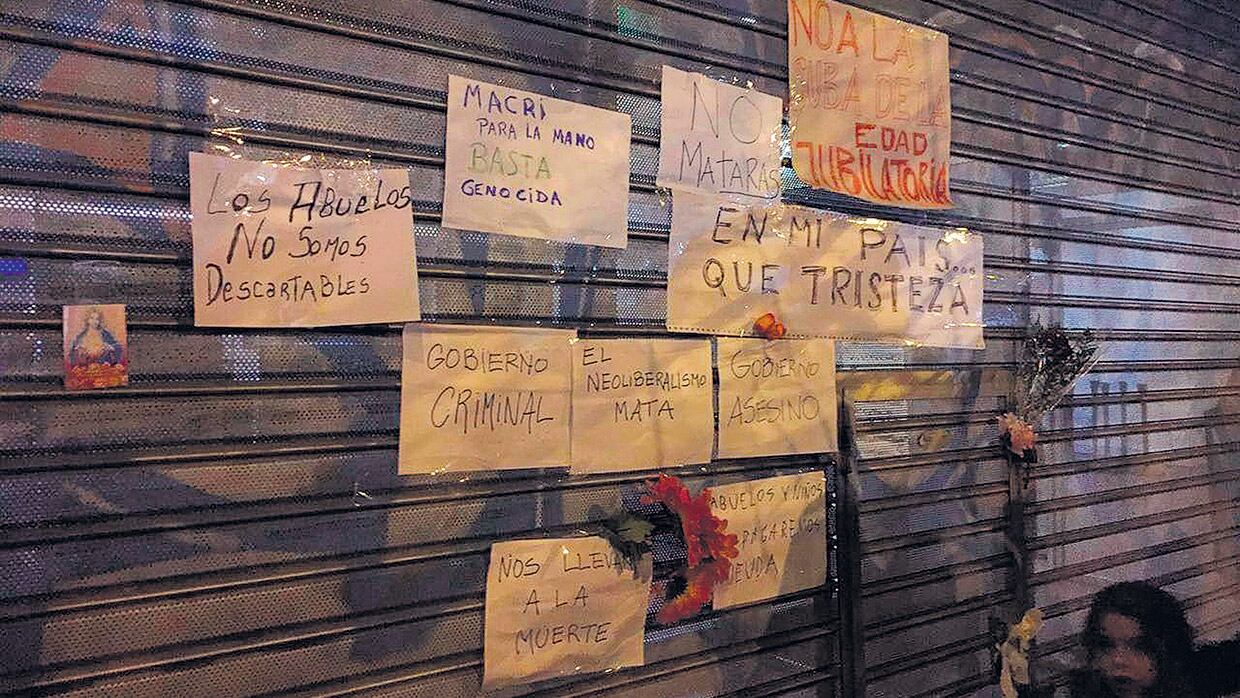 NO A LA
SUBA DE LA
EDAD
JUBILATORIA
MACRI
PARA LA MANO
BASTA
GENOCIDA
NO
MATARAS
LOS ABUELOS
NO SOMOS
DESCARTABLES
EN MI PAIS...
QUE TRISTEZA
GOBIERNO
CRIMINAL
EL
NEOLIBERALISMO
MATA
GOBIERNO
ASESINO
ABUELOS Y NIÑOS
PAGAREMOS
DEUDA
NOS LLEVAN
A LA
MUERTE